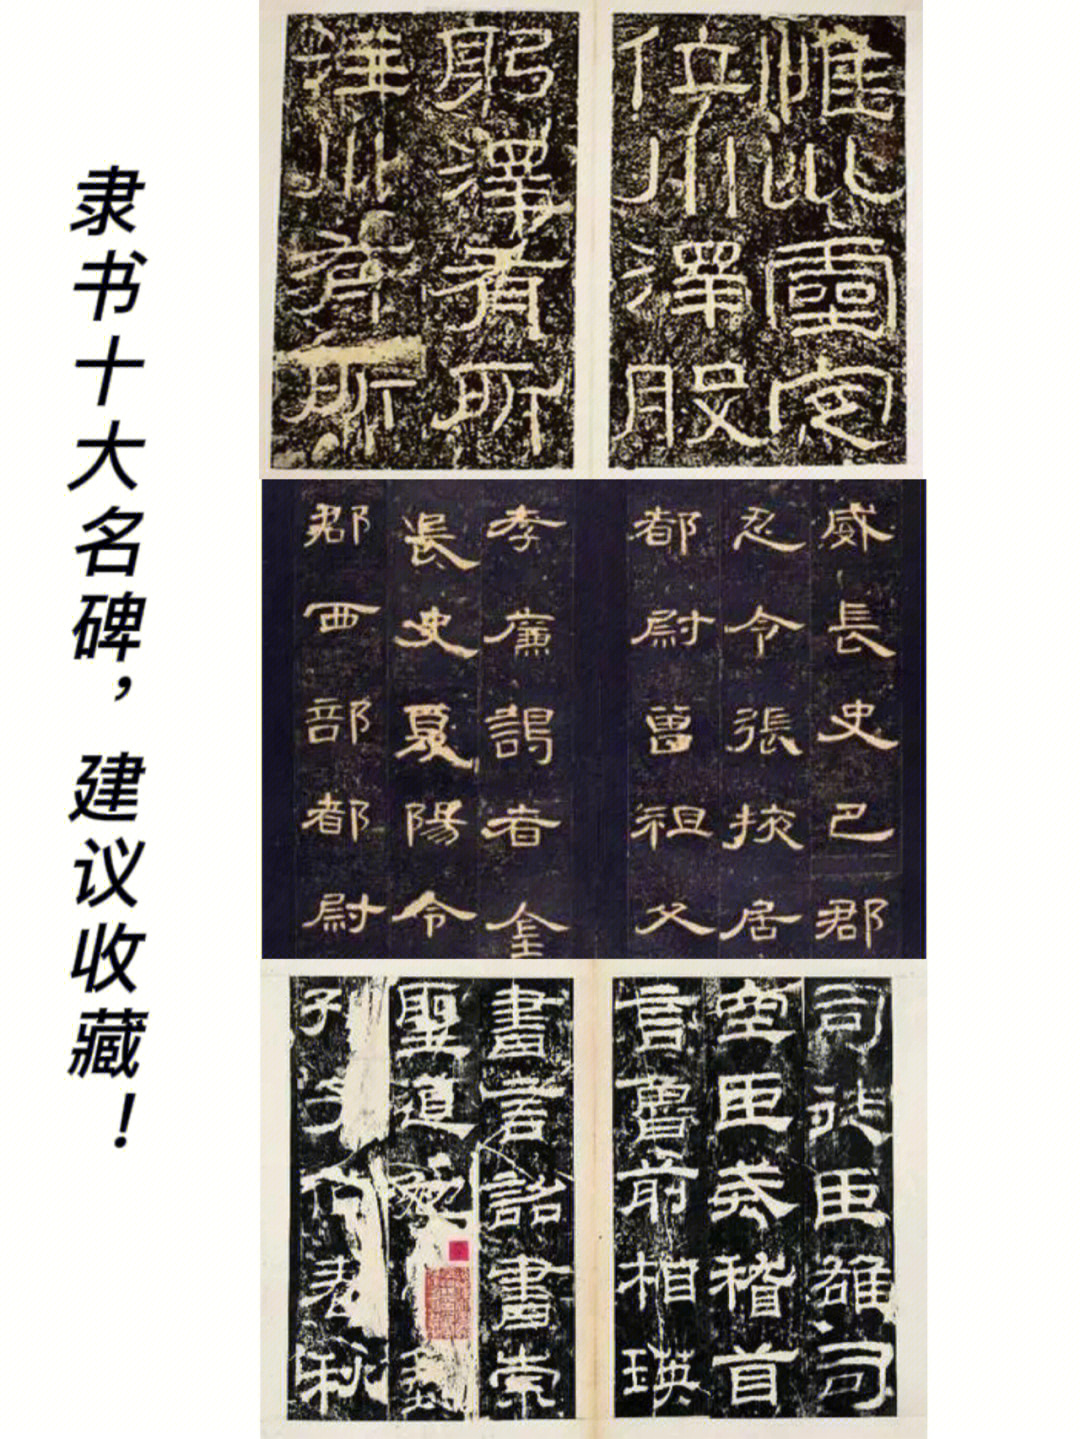 隶书十大名碑，建议收藏！
惟巛靈定
位川澤股
躬澤有所
注川有所
威長史巴郡
忍令張掖居
都尉曾祖父
孝廉謁者金
長史夏陽令
郡西部都尉
司徒臣雄司
空臣戒稽首
言魯前相瑛
書言詔書崇
聖道
孔子作春秋